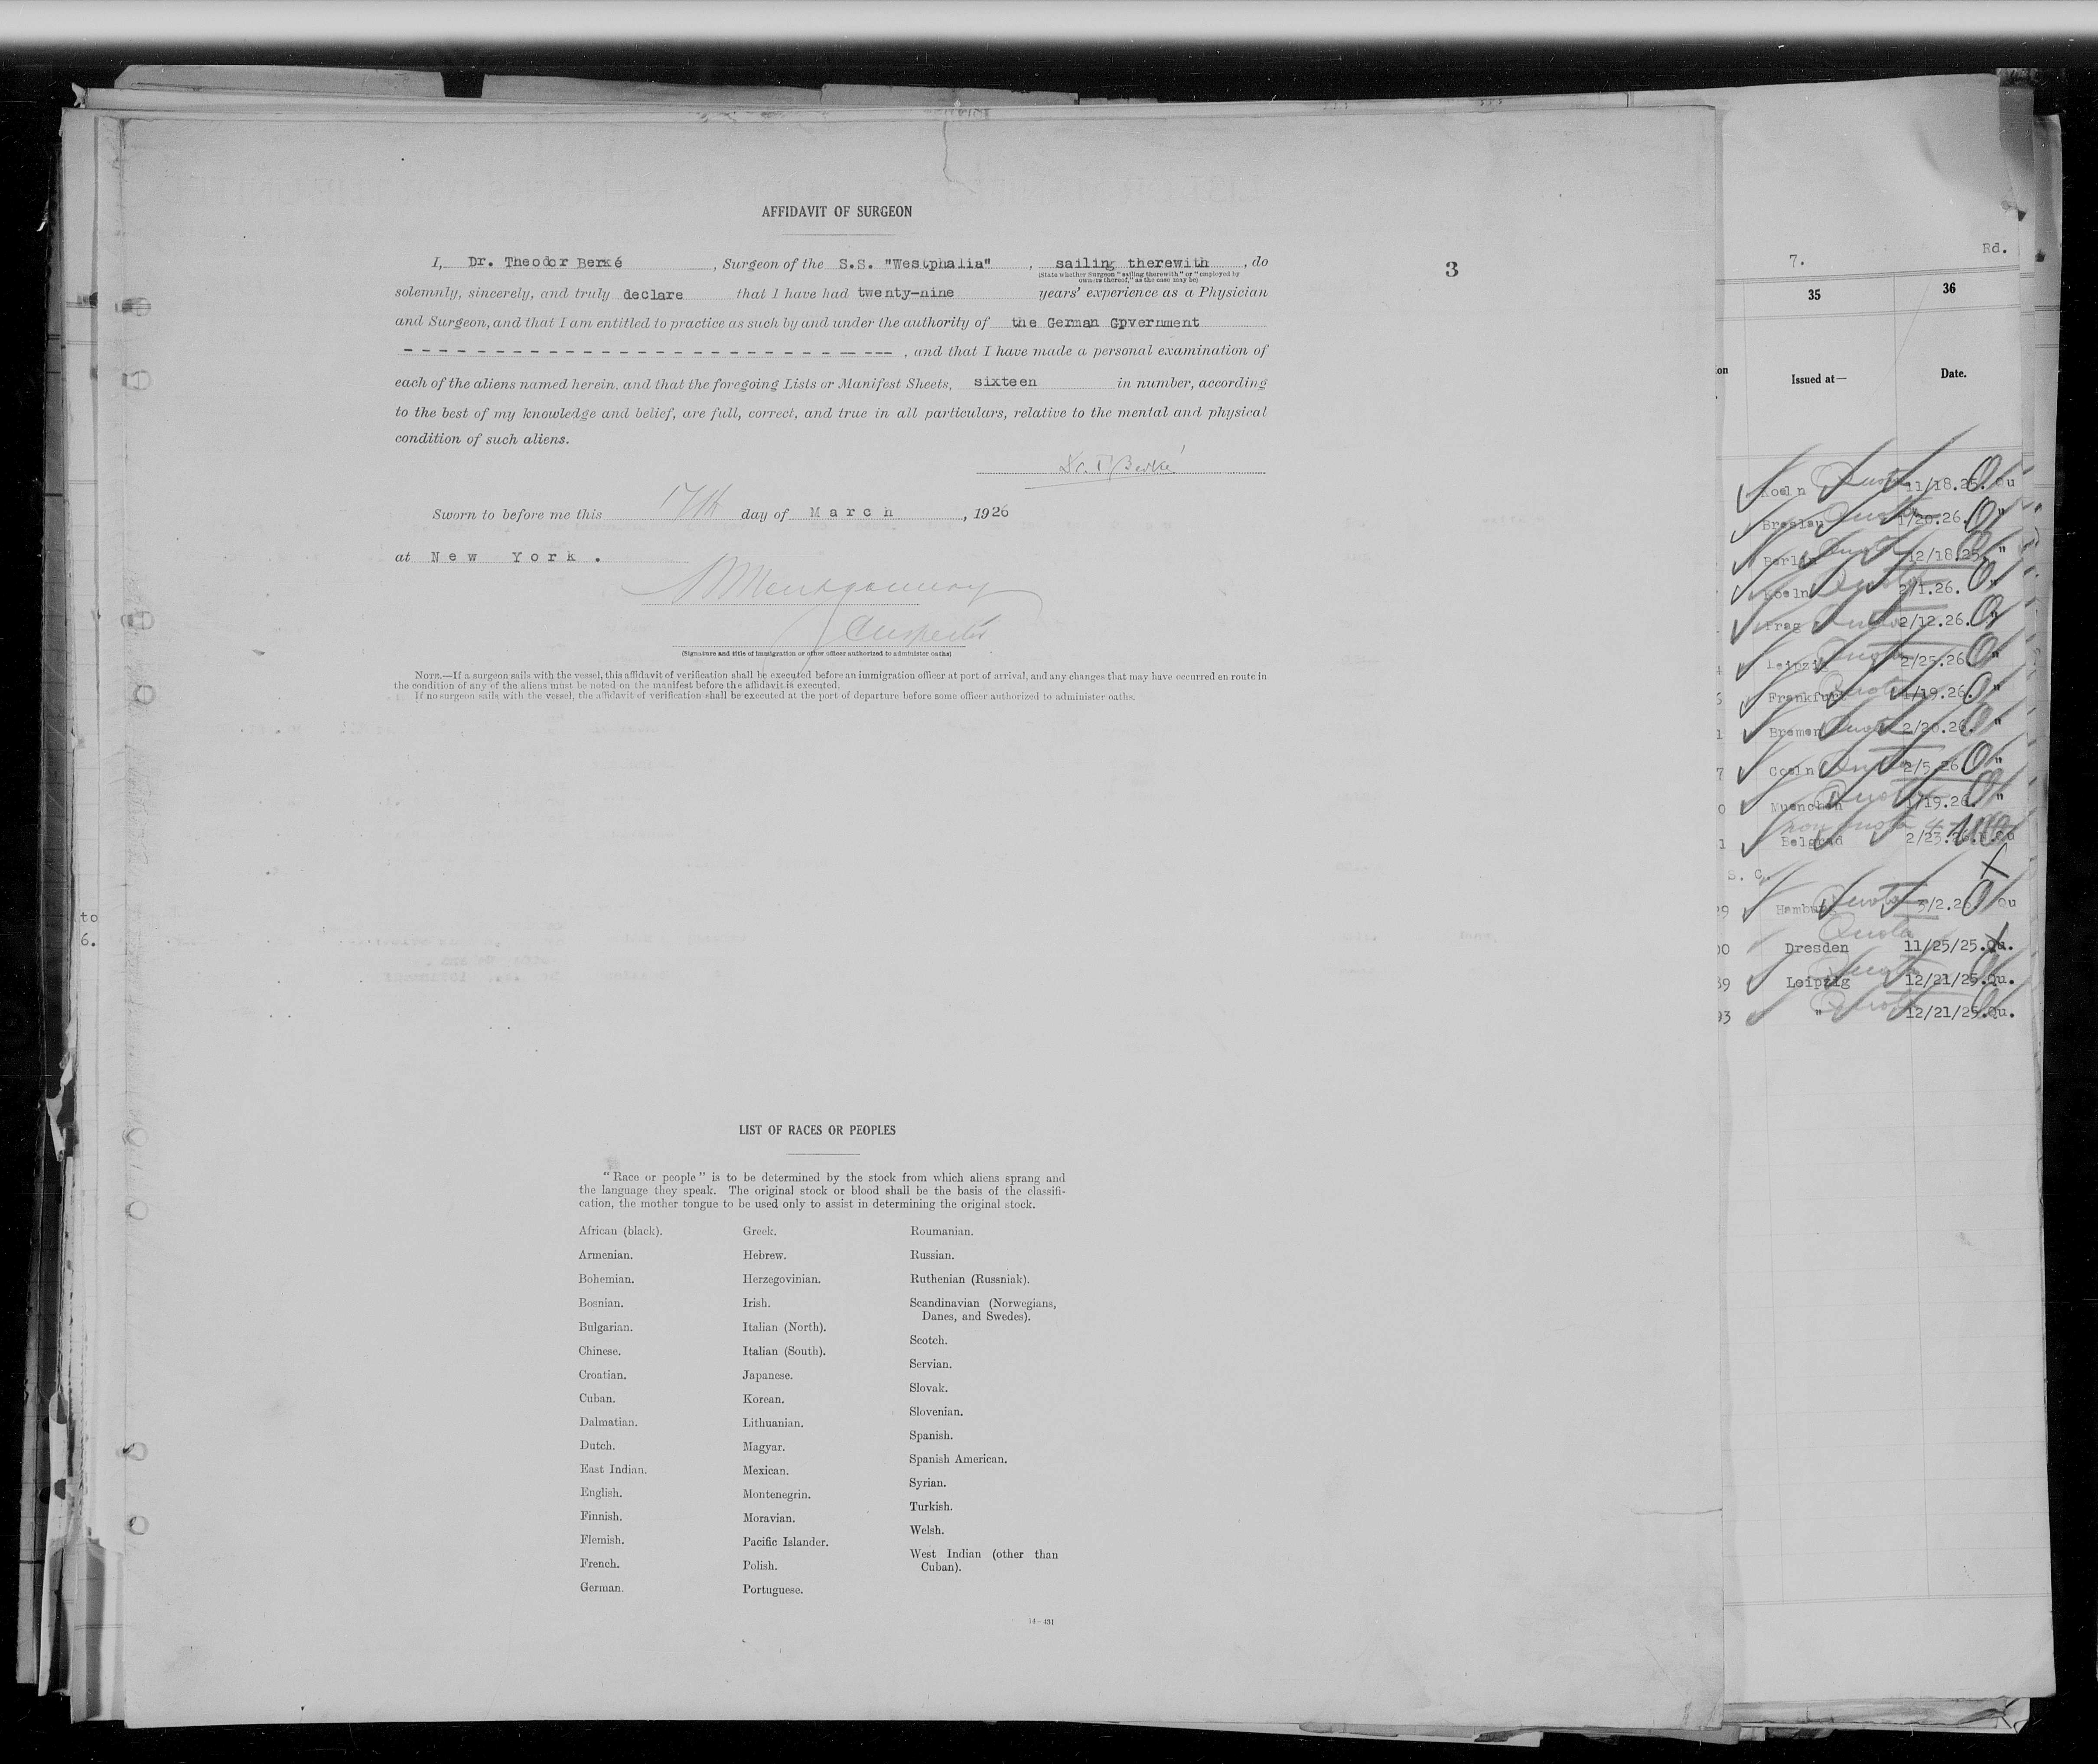 AFFIDAVIT OF SURGEON
3
I, Dr. Theodor Berké , Surgeon of the S.S. "Westphalia" , sailing therewith , do
(State whether Surgeon "sailing therewith" or "employed by
owners thereof," as the case may be)
solemnly, sincerely, and truly declare that I have had twenty-nine years' experience as a Physician
and Surgeon, and that I am entitled to practice as such by and under the authority of the German Gpvernment
, and that I have made a personal examination of
each of the aliens named herein, and that the foregoing Lists or Manifest Sheets, sixteen in number, according
to the best of my knowledge and belief, are full, correct, and true in all particulars, relative to the mental and physical
condition of such aliens.
Dr. T. Berké
Sworn to before me this 17th day of March , 1926
at New York.
Montgomery
Inspector
(Signature and title of immigration or other officer authorized to administer oaths)
NOTE.—If a surgeon sails with the vessel, this affidavit of verification shall be executed before an immigration officer at port of arrival, and any changes that may have occurred en route in
the condition of any of the aliens must be noted on the manifest before the affidavit is executed.
If no surgeon sails with the vessel, the affidavit of verification shall be executed at the port of departure before some officer authorized to administer oaths.
LIST OF RACES OR PEOPLES
"Race or people" is to be determined by the stock from which aliens sprang and
the language they speak. The original stock or blood shall be the basis of the classifi-
cation, the mother tongue to be used only to assist in determining the original stock.
African (black).
Armenian.
Bohemian.
Bosnian.
Bulgarian.
Chinese.
Croatian.
Cuban.
Dalmatian.
Dutch.
East Indian.
English.
Finnish.
Flemish.
French.
German.
Greek.
Hebrew.
Herzegovinian.
Irish.
Italian (North).
Italian (South).
Japanese.
Korean.
Lithuanian.
Magyar.
Mexican.
Montenegrin.
Moravian.
Pacific Islander.
Polish.
Portuguese.
Roumanian.
Russian.
Ruthenian (Russniak).
Scandinavian (Norwegians,
Danes, and Swedes).
Scotch.
Servian.
Slovak.
Slovenian.
Spanish.
Spanish American.
Syrian.
Turkish.
Welsh.
West Indian (other than
Cuban).
14—431
to
6.
7. Rd.
35 36
Issued at— Date.
Koeln Quota 11/18.25. Qu
Breslau Quota 1/20.26. "
Berlin Quota 12/18.25. "
Koeln Quota 2/1.26. "
Prag Quota 2/12.26. "
Leipzig Quota 2/25.26. "
Frankfurt Quota 1/19.26. "
Bremen Quota 2/20.26. "
Coeln Quota 2/5.26. "
Muenchen Quota 1/19.26. "
non quota
Belgrad 2/23.26.N.Qu
S. C.
Hamburg Quota 3/2.26. Qu
Quota
Dresden 11/25/25.Qu.
Leipzig Quota 12/21/25.Qu.
" Quota 12/21/25.Qu.